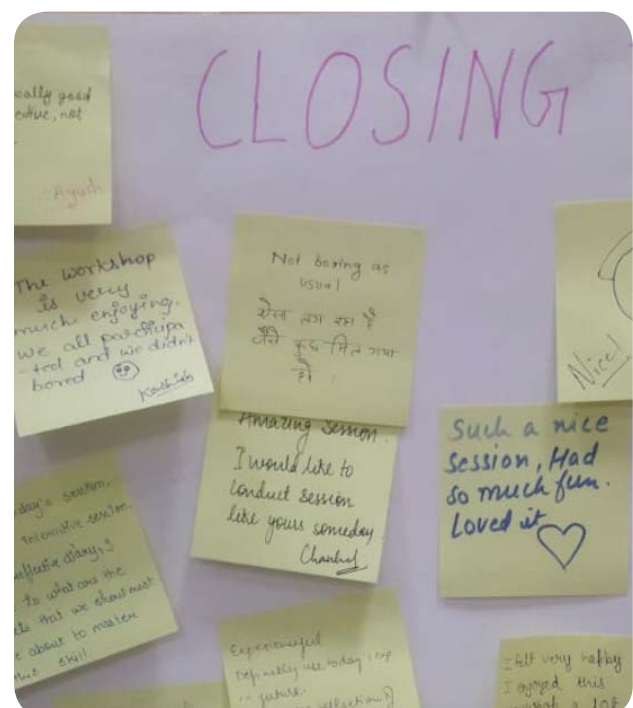 CLOSING
really good
not
Ayush
The workshop
is very
much enjoying.
we all participa
-ted and we didn't
bored
Kashish
Not boring as
usual
ऐसा लग रहा है
जैसे कुछ मिल गया
हो ।
Nice!
Amazing Session.
I would like to
conduct session
like yours someday.
Such a nice
session, Had
so much fun.
Loved it
day's session.
Interactive session.
reflective diary,
to what are the
that we should must
about to master
skill.
Experienceful
today's exp
future.
reflection
I felt very happy
I enjoyed this
a lot